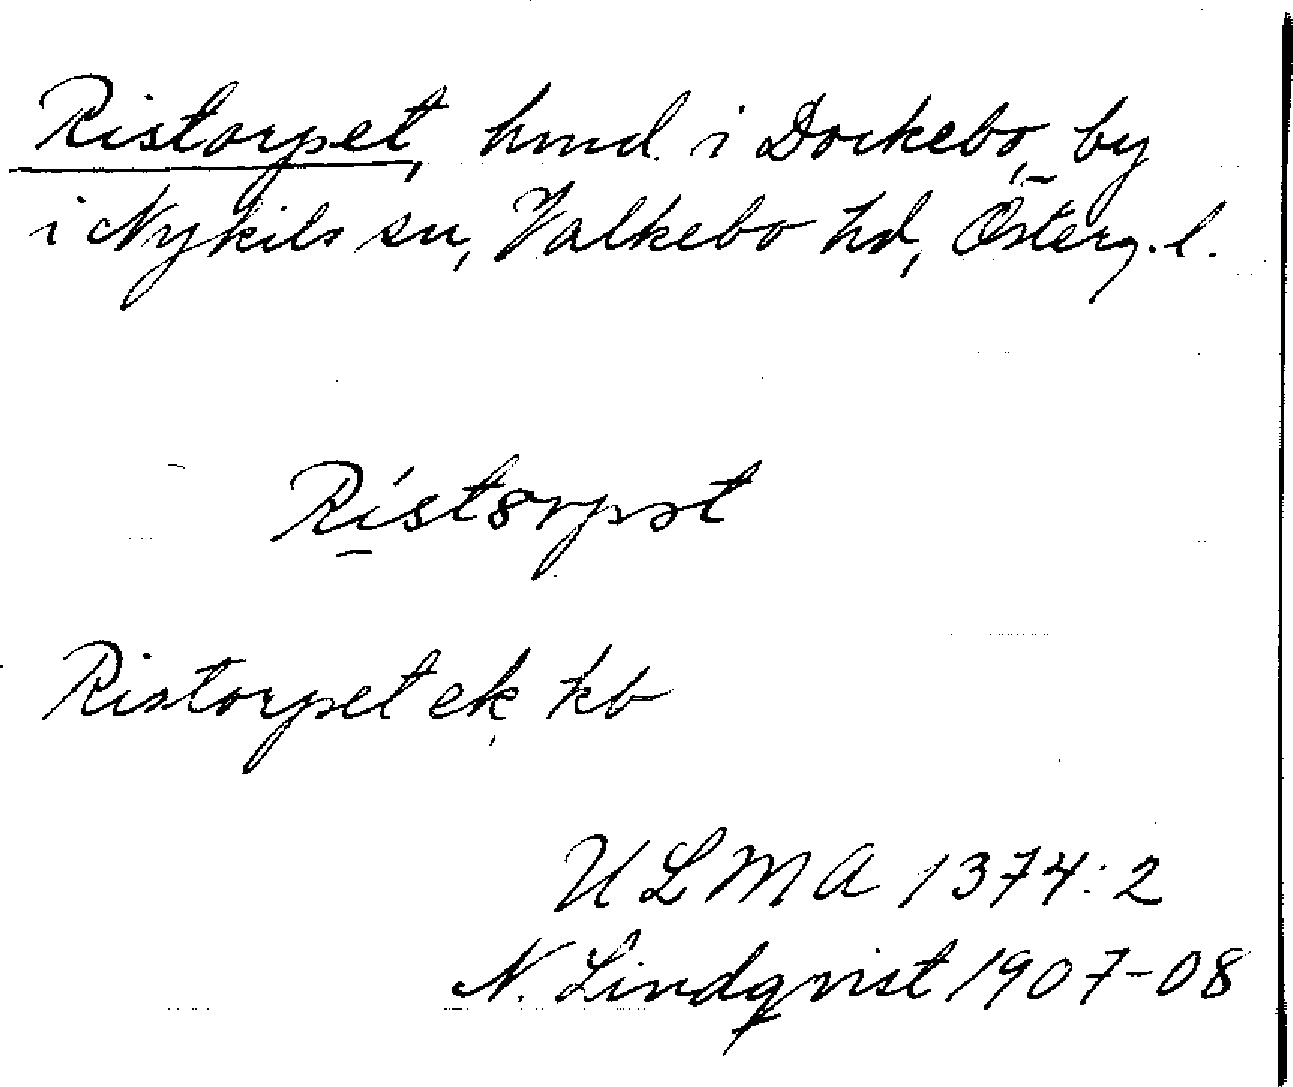 Ristorpet, hmd. i Dockebo, by
i Nykils sn, Valkebo hd, Österg. l.
Rist8rpət
Ristorpet ek, kb
ULMA 1374:2
N. Lindqvist 1907-08